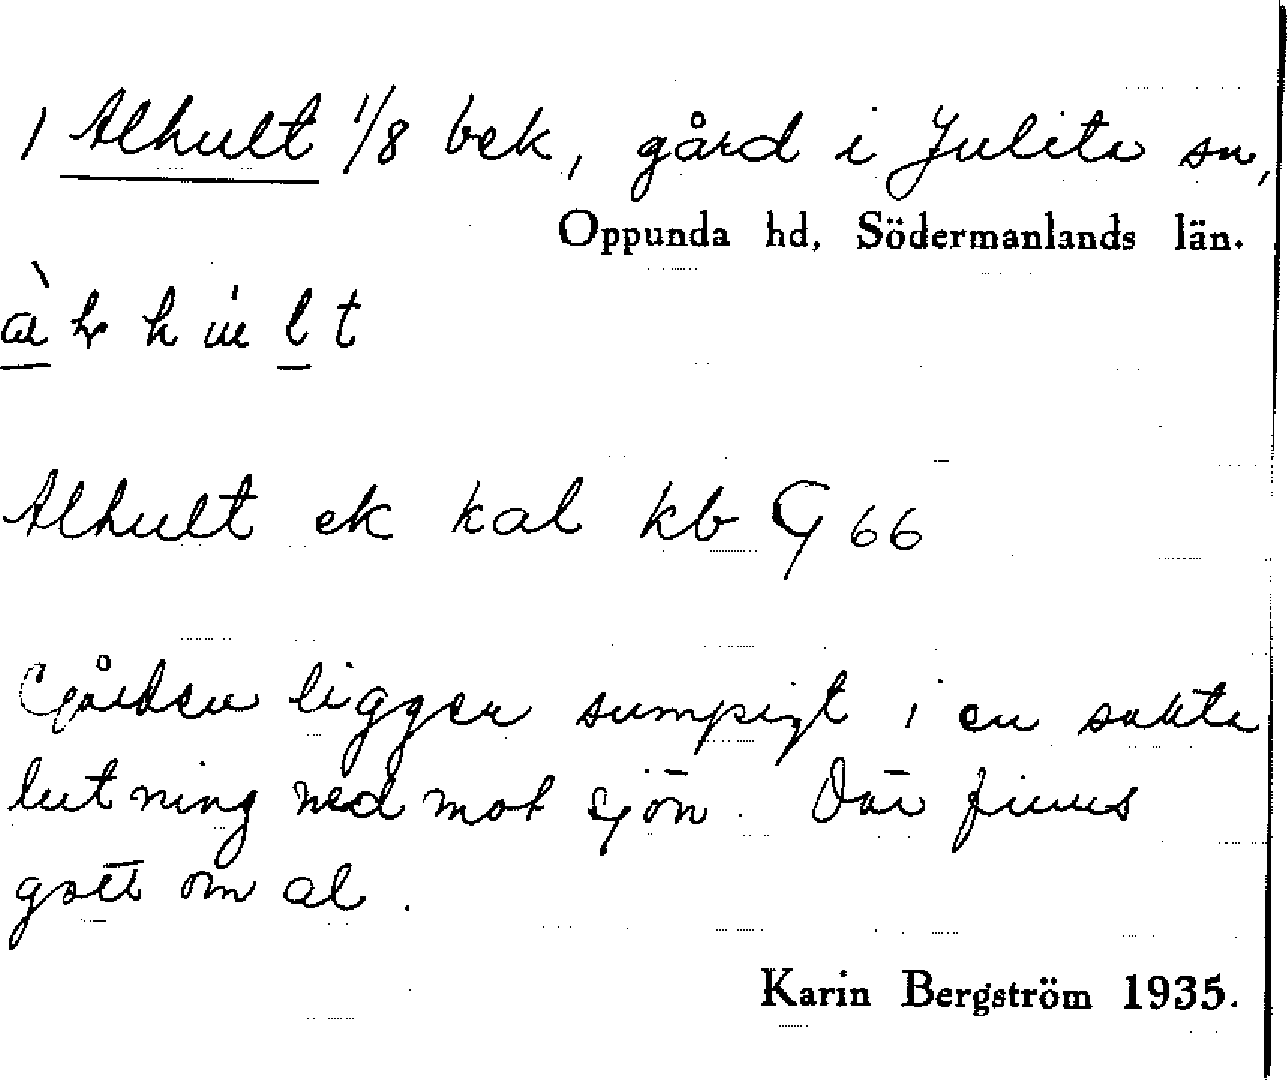 1 Alhult 1/8 bek, gård i Julita sn,
Oppunda hd, Södermanlands län.
Alhult ek kal kb G 66
Gården ligger sumpigt i en sakta
lutning ned mot sjön. Där finns
gott om al.
Karin Bergström 1935.